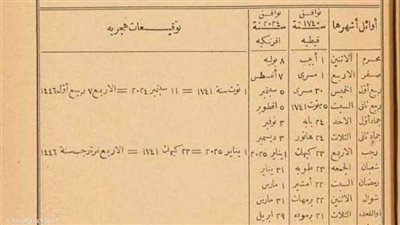 أوائل أشهرها توافق سنة ١٧٤٠ قبطيه توافق سنة ٢٠٢٤ افرنكيه توقيعات هجريه
محرم الاثنين ١ أبيب ٨ يوليه
صفر الاربع ١ مسرى ٧ أغسطس
ربيع أول الخميس ٣٠ مسرى ٥ سبتمبر ١ توت سنة ١٧٤١ = ١١ سبتمبر ٢٠٢٤ = الاربع ٧ ربيع أول ١٤٤٦
ربيع ثانى السبت ٢٥ توت ١٧٤١ ٥ اكتوبر
جماد أول الاحد ٢٤ بابه ٣ نوفبر
جماد ثانى الثلاث ٢٤ هاتور ٣ ديسمبر
رجب الاربع ٢٣ كيهك ١ يناير ٢٠٢٥ ١ يناير ٢٠٢٥ = ٢٣ كيهك ١٧٤١ = الاربع غرة رجب سنة ١٤٤٦
شعبان الجمعه ٢٣ طوبه ٣١ يناير
رمضان السبت ٢٢ أمشير ١ مارس
شوال الاثنين ٢٢ برمهات ٣١ مارس
ذوالقعده الثلاث ٢١ برموده ٢٩ ابريل